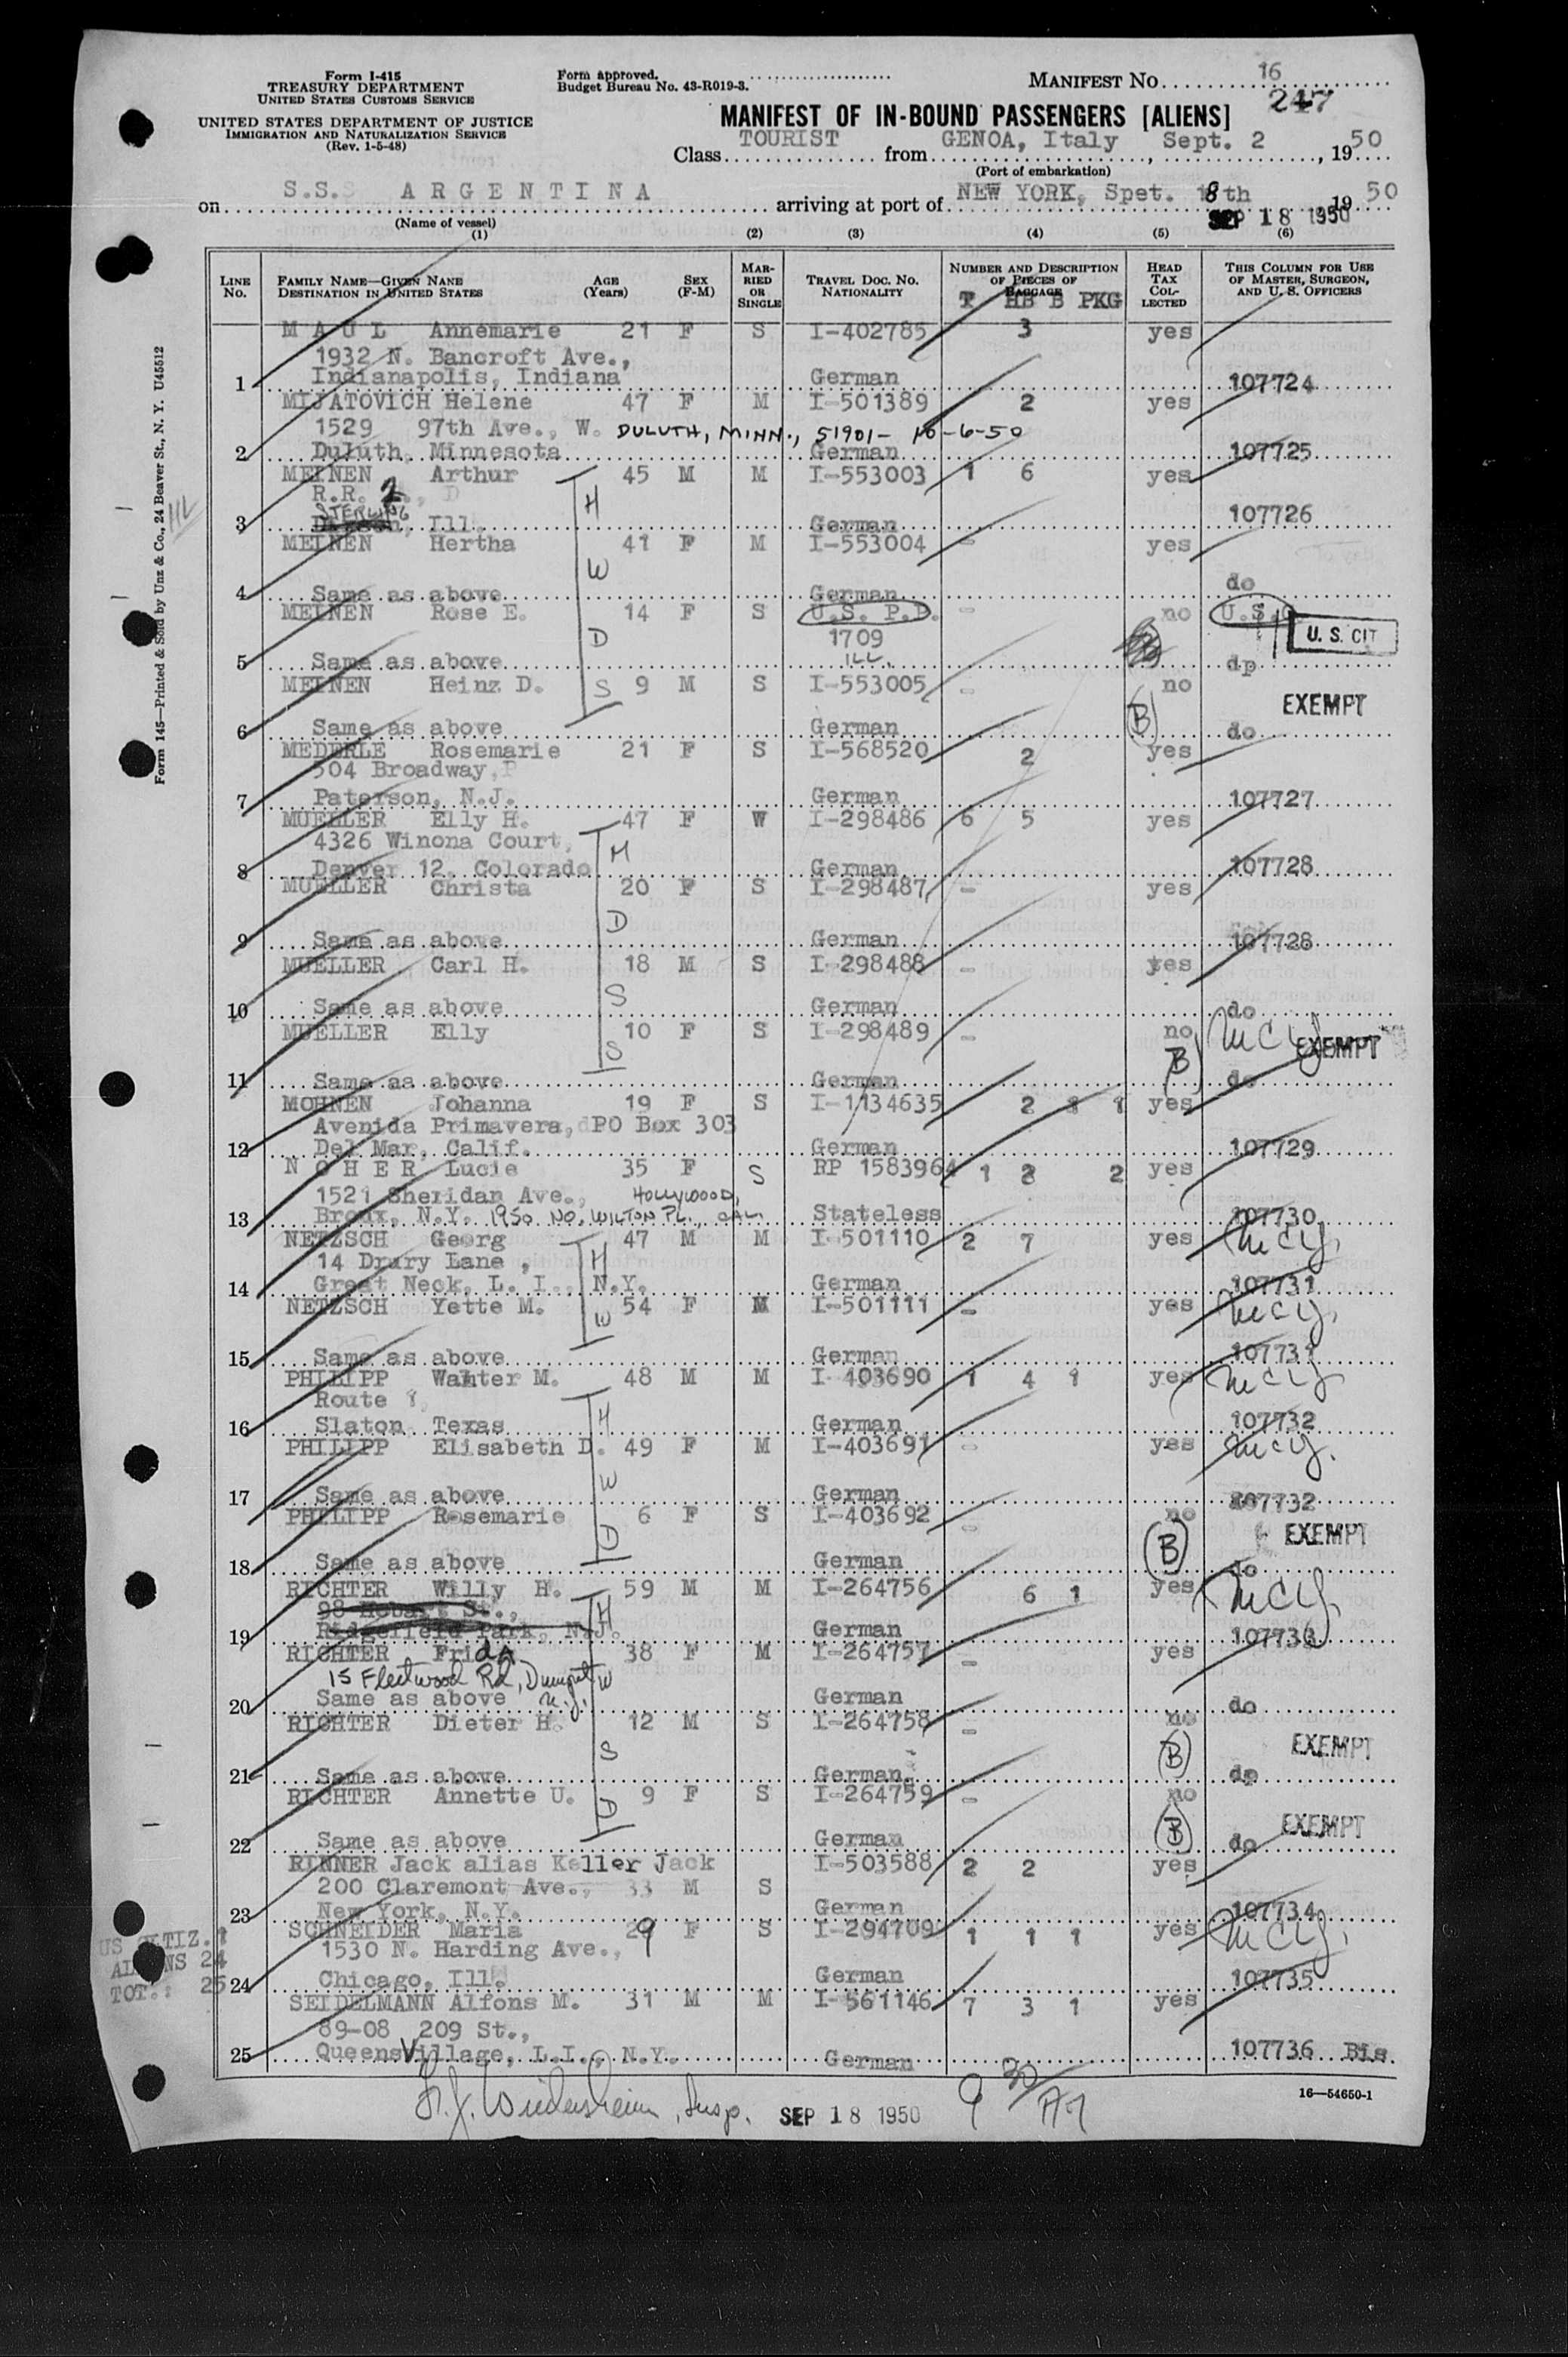 Form I-415
TREASURY DEPARTMENT
UNITED STATES CUSTOMS SERVICE
UNITED STATES DEPARTMENT OF JUSTICE
IMMIGRATION AND NATURALIZATION SERVICE
(Rev. 1-5-48)
Form approved.
Budget Bureau No. 43-R019-3.
MANIFEST NO. 16
247
MANIFEST OF IN-BOUND PASSENGERS [ALIENS]
Class TOURIST from GENOA, Italy, Sept. 2, 1950
(Port of embarkation)
on S.S. ARGENTINA arriving at port of NEW YORK, Spet. 18th 1950
SEP 18 1950
(Name of vessel)
(1) (2) (3) (4) (5) (6)
LINE No. FAMILY NAME—GIVEN NAME DESTINATION IN UNITED STATES AGE (Years) SEX (F-M) MARRIED OR SINGLE TRAVEL DOC. NO. NATIONALITY NUMBER AND DESCRIPTION OF PIECES OF BAGGAGE HEAD TAX COLLECTED THIS COLUMN FOR USE OF MASTER, SURGEON, AND U. S. OFFICERS
T HB B PKG
MAUL Annemarie 21 F S I-402785 3 yes
1932 N. Bancroft Ave.,
1 Indianapolis, Indiana German 107724
MIJATOVICH Helene 47 F M I-501389 2 yes
1529 97th Ave., W. DULUTH, MINN., 51901- 10-6-50
2 Duluth, Minnesota German 107725
MEINEN Arthur 45 M M I-553003 1 6 yes
R.R. 2
H
STERLING
3 Ill. German 107726
MEINEN Hertha 41 F M I-553004 - yes
W
4 Same as above German do
MEINEN Rose E. 14 F S U.S. P.P. - no U.S.C
D 1709 U. S. CIT
ILL.
5 Same as above do
MEINEN Heinz D. S 9 M S I-553005 - no
EXEMPT
6 Same as above German (B) do
MEDERLE Rosemarie 21 F S I-568520 2 yes
504 Broadway,
7 Paterson, N.J. German 107727
MUELLER Elly H. 47 F W I-298486 6 5 yes
4326 Winona Court,
8 Denver 12, Colorado German 107728
MUELLER Christa 20 F S I-298487 - yes
D
9 Same as above German 107728
MUELLER Carl H. 18 M S I-298488 - yes
S
10 Same as above German do
MUELLER Elly 10 F S I-298489 - no
S (B) EXEMPT
11 Same as above German do
MOHNEN Johanna 19 F S I-1134635 2 1 1 yes
Avenida Primavera, PO Box 303
12 Del Mar, Calif. German 107729
NOHER Lucie 35 F S RP 1583964 1 2 2 yes
1521 Sheridan Ave., HOLLYWOOD,
13 Bronx, N.Y. 1950 NO. WILTON PL., CAL. Stateless 107730
NETZSCH Georg 47 M M I-501110 2 7 yes
14 Drury Lane, H
14 Great Neck, L. I., N.Y. German 107731
NETZSCH Yette M. 54 F M I-501111 - yes
W
15 Same as above German 107731
PHILIPP Walter M. 48 M M I-403690 1 4 1 yes
Route 1, H
16 Slaton, Texas German 107732
PHILIPP Elisabeth D. 49 F M I-403691 - yes
W
17 Same as above German 107732
PHILIPP Rosemarie 6 F S I-403692 - no
D (B) EXEMPT
18 Same as above German do
RICHTER Willy H. 59 M M I-264756 6 1 yes
98 Hobart St., H
19 Ridgefield Park, N.J. German 107733
RICHTER Frida 38 F M I-264757 - yes
15 Fleetwood Rd, Dumont W
N.J.
20 Same as above German do
RICHTER Dieter H. 12 M S I-264758 - no
S (B) EXEMPT
21 Same as above German do
RICHTER Annette U. 9 F S I-264759 - no
D (B) EXEMPT
22 Same as above German do
RINNER Jack alias Keller Jack I-503588 2 2 yes
200 Claremont Ave., 33 M S
23 New York, N.Y. German 107734
SCHNEIDER Maria 29 F S I-294709 1 1 1 yes
1530 N. Harding Ave.,
24 Chicago, Ill. German 107735
SEIDELMANN Alfons M. 31 M M I-561146 7 3 1 yes
89-08 209 St.,
25 Queens Village, L.I., N.Y. German 107736 Bis
US CITIZ. 1
ALIENS 24
TOT.: 25
Insp. SEP 18 1950 9 30/AM
16—54650-1
Form 145—Printed & Sold by Unz & Co., 24 Beaver St., N. Y. U45512